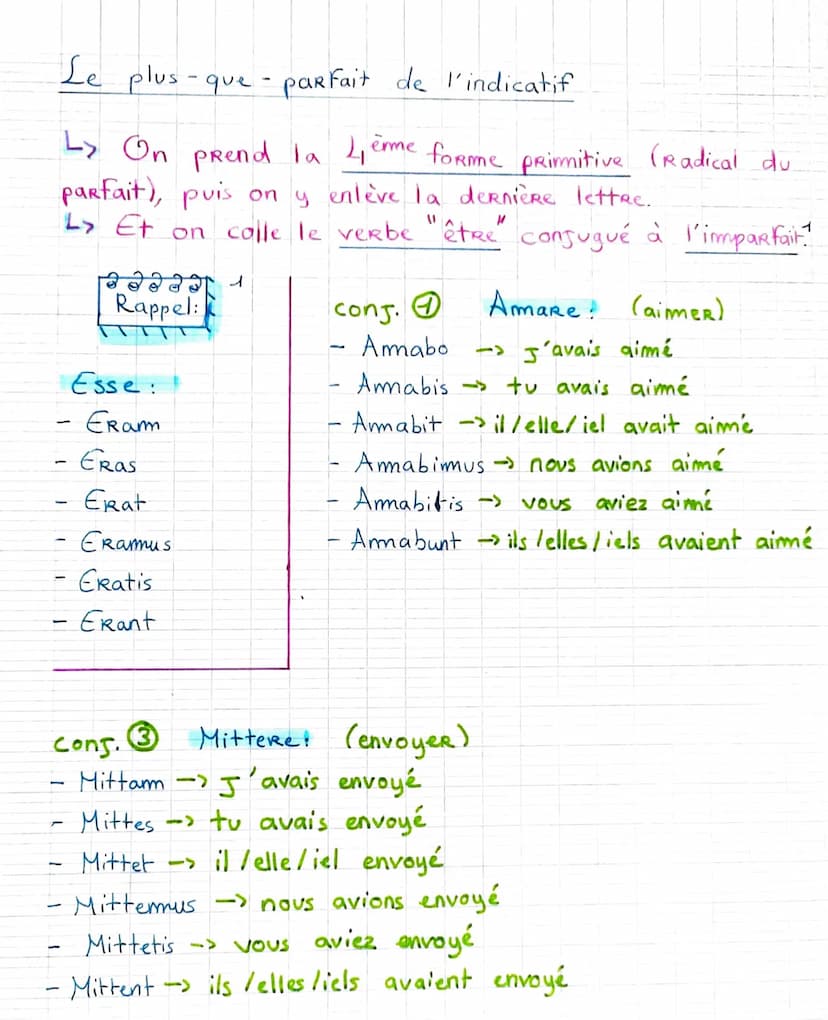 Le plus-que-parfait de l'indicatif
↳ On prend la 4ème forme primitive (radical du
parfait), puis on y enlève la dernière lettre.
↳ Et on colle le verbe "être" conjugué à l'imparfait.¹
Rappel: 1
Esse:
- Eram
- Eras
- Erat
- Eramus
- Eratis
- Erant
conj. ① Amare: (aimer)
- Amabo → j'avais aimé
- Amabis → tu avais aimé
- Amabit → il/elle/iel avait aimé
- Amabimus → nous avions aimé
- Amabitis → vous aviez aimé
- Amabunt → ils/elles/iels avaient aimé
conj. ③ Mittere: (envoyer)
- Mittam → J'avais envoyé
- Mittes → tu avais envoyé
- Mittet → il/elle/iel envoyé
- Mittemus → nous avions envoyé
- Mittetis → vous aviez envoyé
- Mittent → ils/elles/iels avaient envoyé